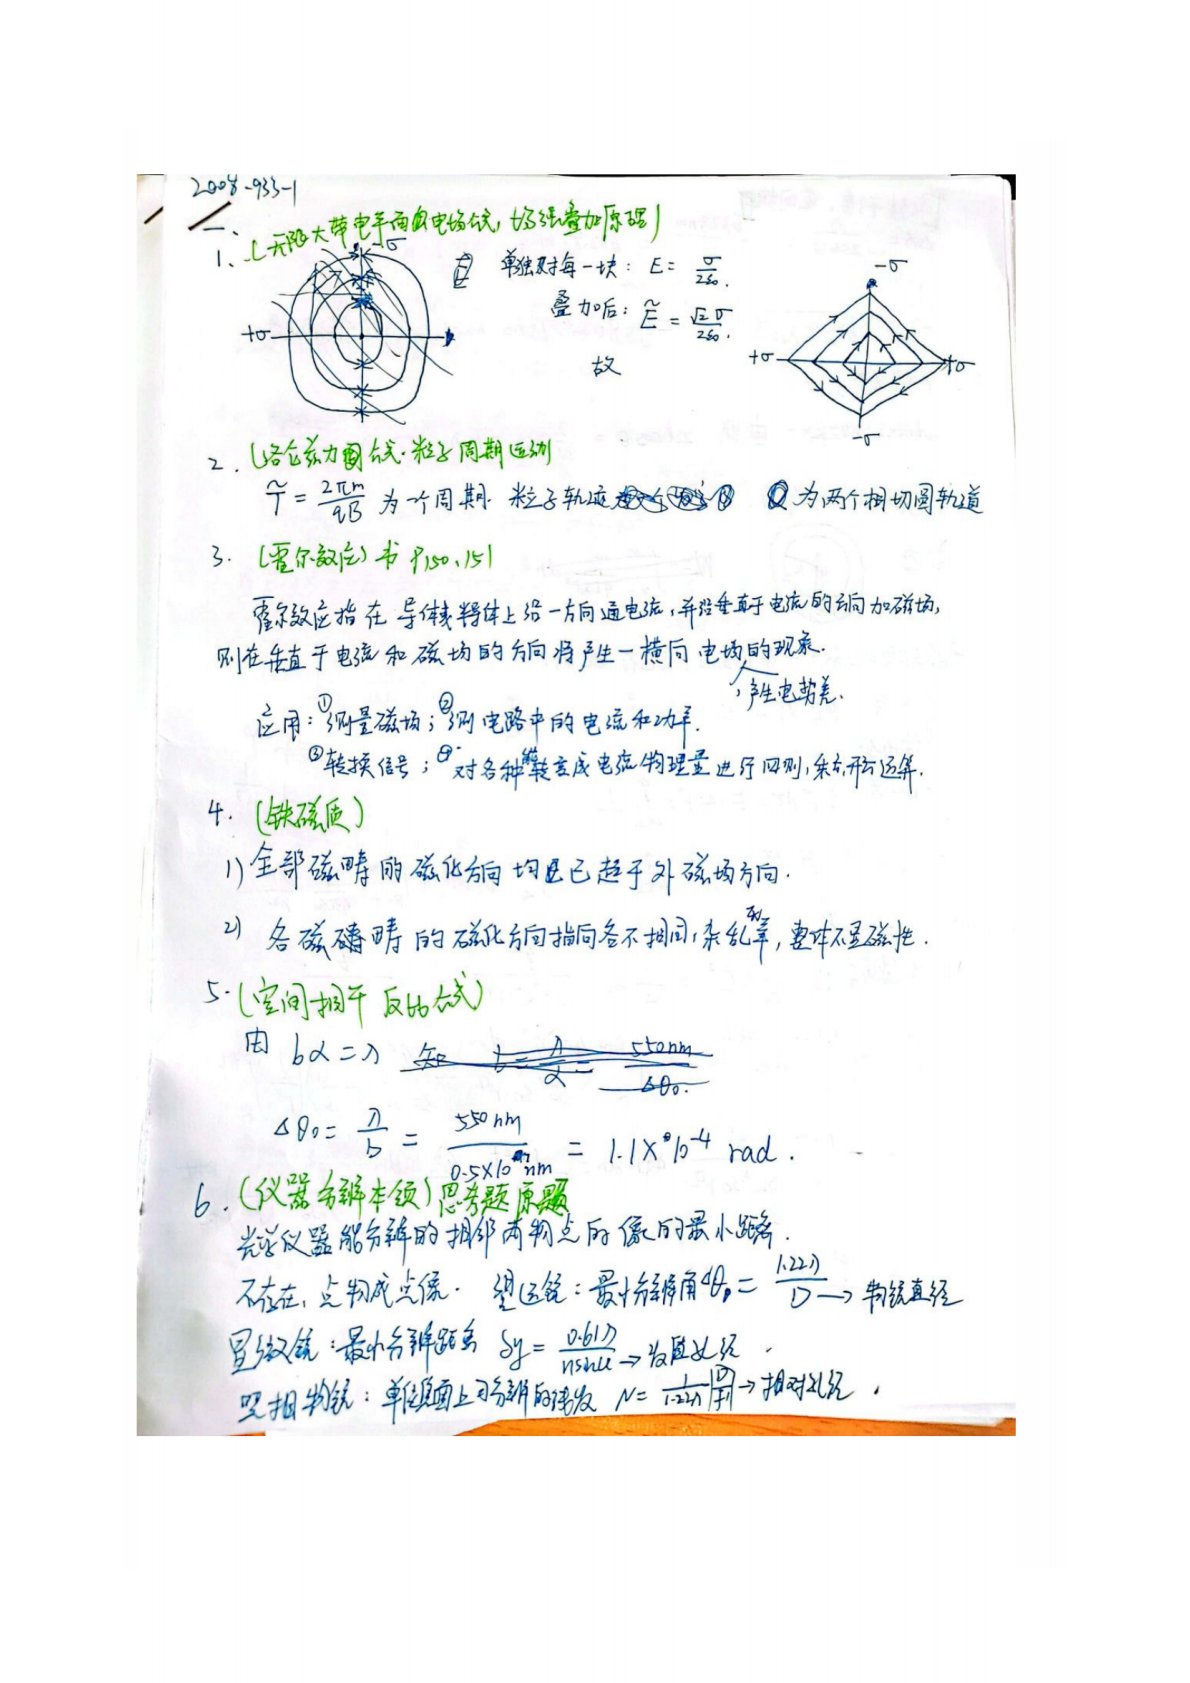 2008-933-1
一、
1、(无限大带电平面电场公式, 场强叠加原理)
-σ
+σ
单独对每一块: E = σ/2ε₀.
叠加后: Ẽ = √2σ/2ε₀.
故
-σ
+σ
+σ
-σ
2. (洛仑兹力公式·粒子周期运动)
T̃ = 2πm/qB 为一个周期. 粒子轨迹 为两个相切圆轨道
3. (霍尔效应) 书 P150、151
霍尔效应指在导体或半导体上沿一方向通电流,并沿垂直于电流的方向加磁场,
则在垂直于电流和磁场的方向将产生一横向电场的现象.
,产生电势差.
应用: ①测量磁场; ②测电路中的电流和功率.
③转换信号; ④对各种能转变成电流物理量进行四则,乘方,开方运算.
4. (铁磁质)
1) 全部磁畴的磁化方向均已趋于外磁场方向.
2) 各磁畴的磁化方向指向各不相同,杂乱, 整体不显磁性.
5. (空间相干反比公式)
由 bα = λ 知 b = λ/α = 550nm/Δθ₀.
Δθ₀ = λ/b = 550nm/0.5×10⁷nm = 1.1×10⁻⁴ rad.
6. (仪器分辨本领) 思考题原题
光学仪器能分辨的相邻两物点的像的最小距离.
不存在, 点物成点像. 望远镜: 最小分辨角Δθ₀ = 1.22λ/D → 物镜直径
显微镜: 最小分辨距离 δy = 0.61λ/nsinu → 数值孔径.
照相物镜: 单位底面上可分辨的 N = 1/1.22λ |D/f| → 相对孔径.